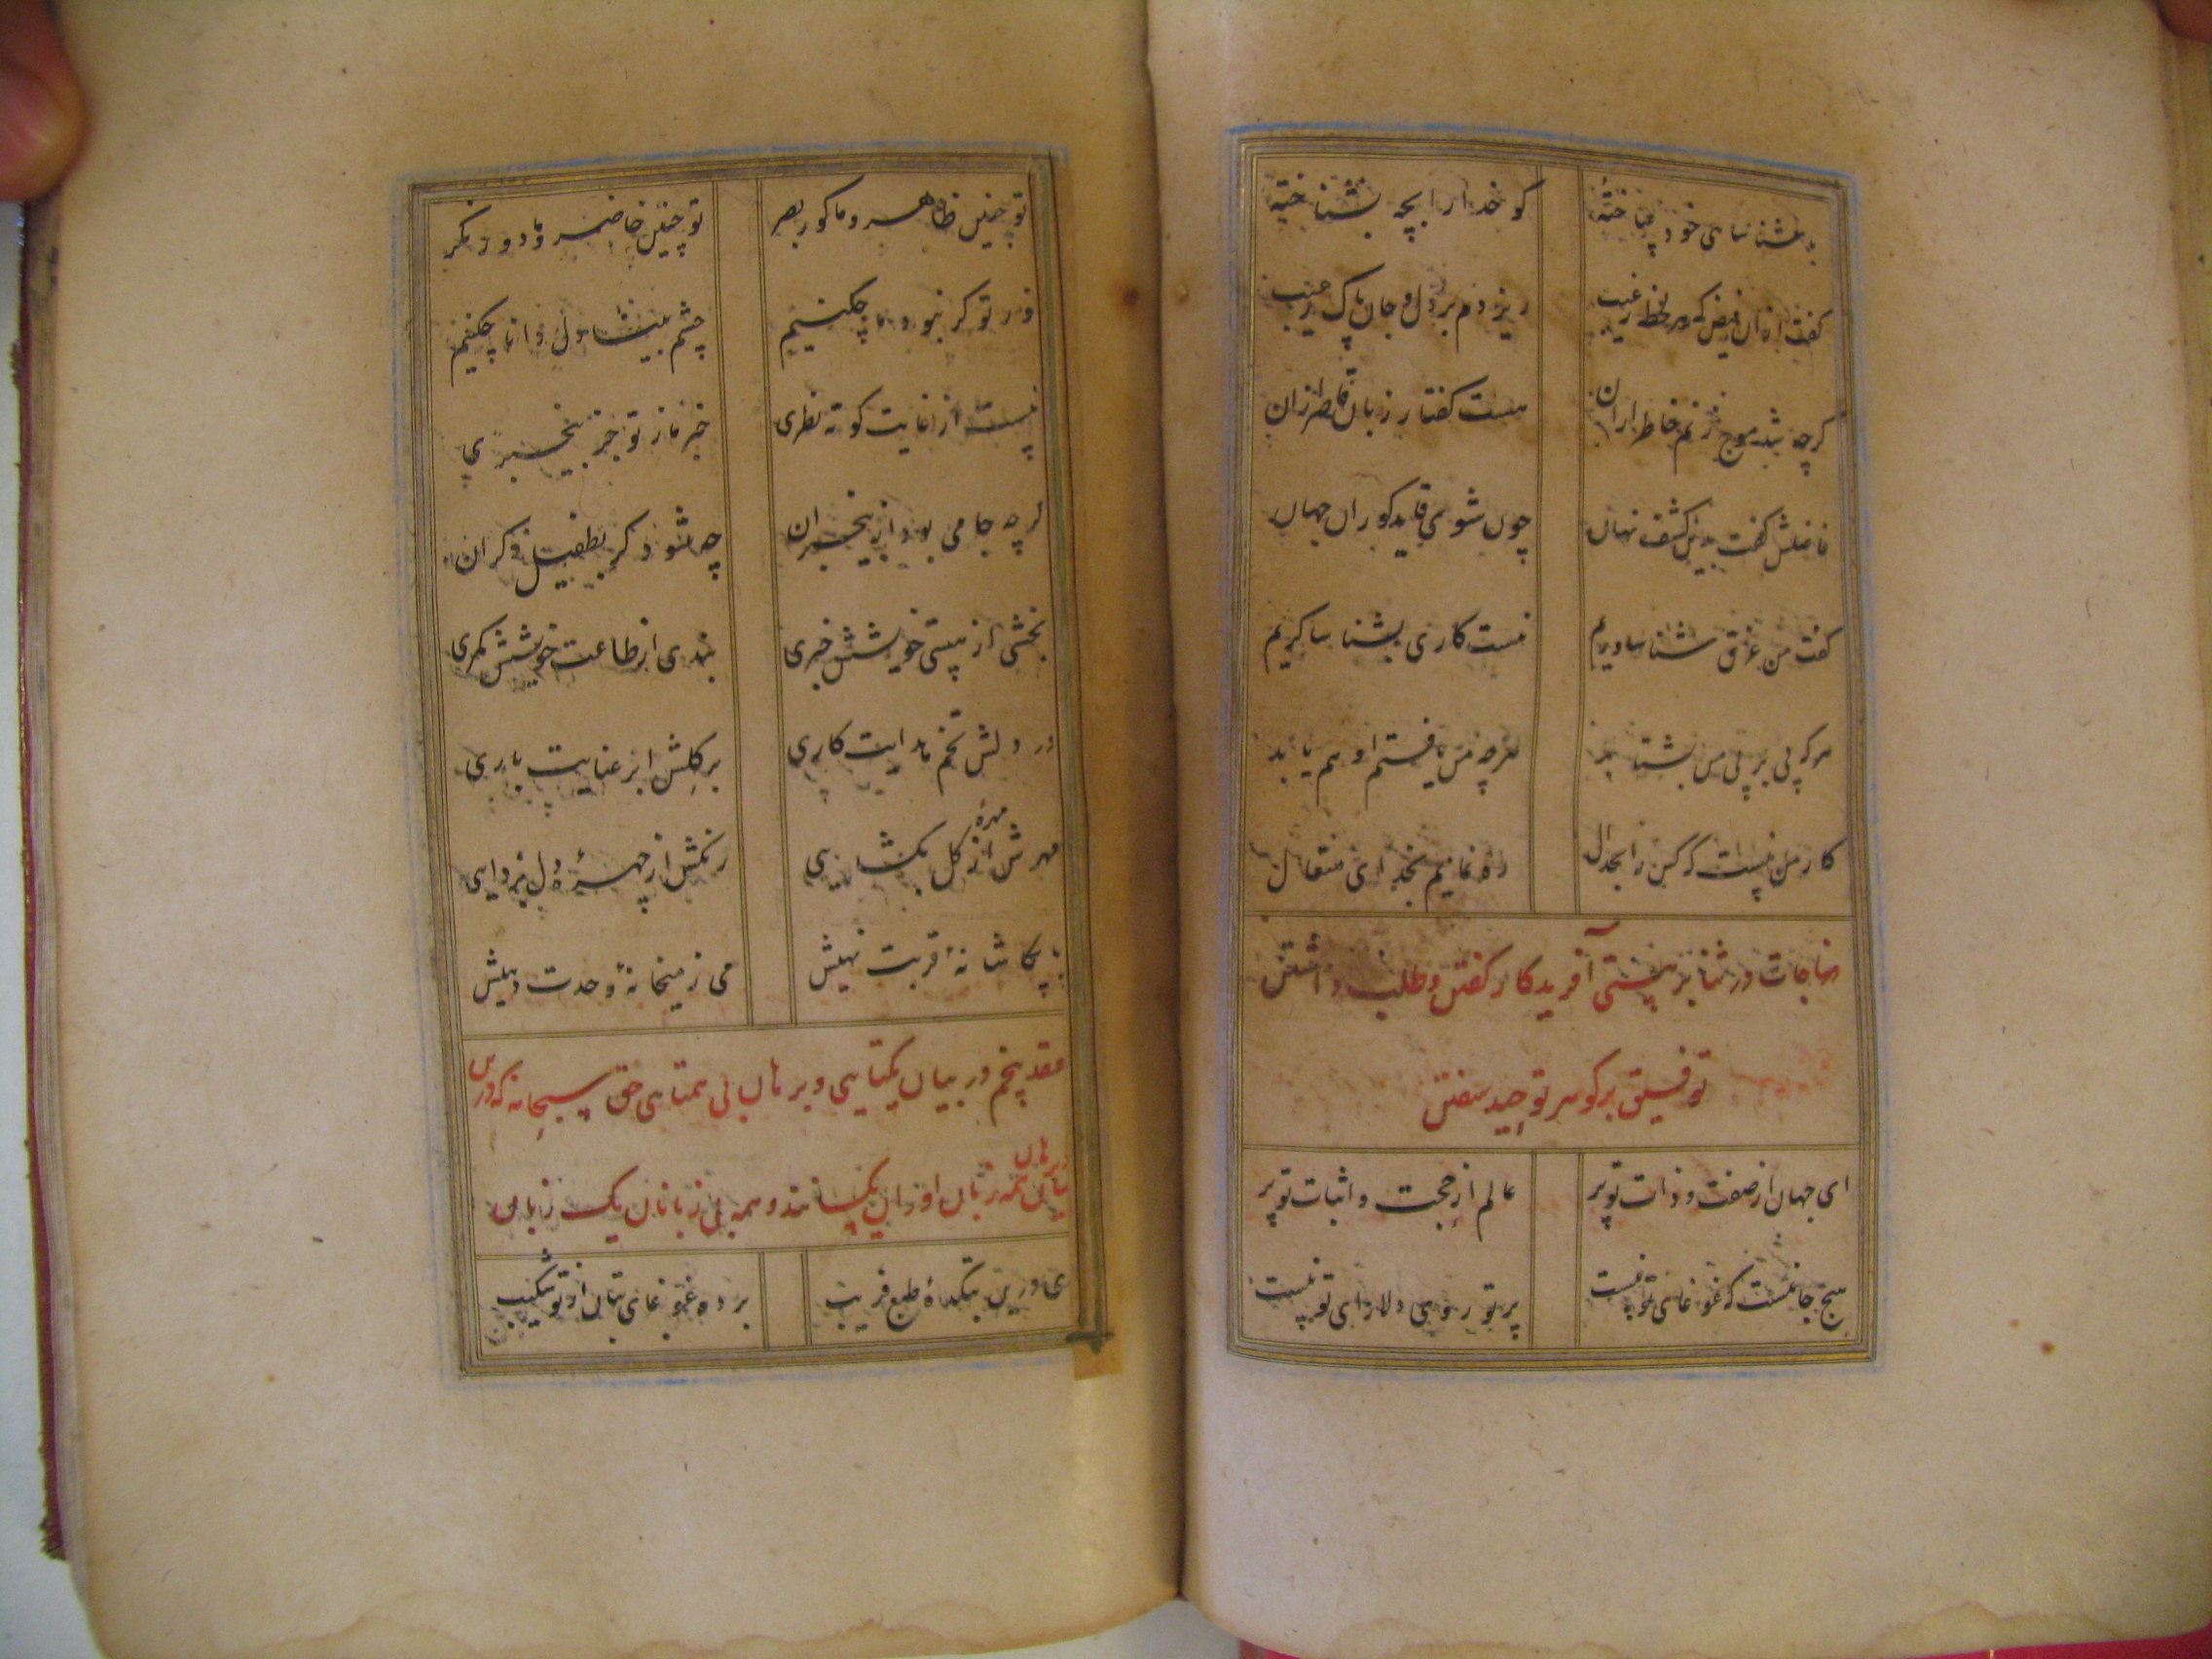 بشناسای خود پرداختهٔ کو خدا را بچه بشناختهٔ
گفت از آن فیض که هر لحظه ز غیب ریزدم بر دل و جان پاک ز عیب
گرچه شد موج زنم خاطر از آن هست گفتار زبان قاصر از آن
فاضلش گفت بدین کشف نهان چون شوی قاید کوران جهان
گفت من غرق شناساوریم نیست کاری بشناساگریم
هر که پی بر پی من بشتابد هرچه من یافتم او هم یابد
کار من نیست که کس را بجدال ره نمایم بخدای متعال
مناجات در ثنا بر هستی آفریدگار گفتن و طلب داشتن
توفیق بر گوهر توحید سفتن
ای جهان از صفت و ذات تو پر عالم از حجت و اثبات تو پر
هیچ جا نیست که غوغای تو نیست پرتو روی دلارای تو نیست
تو چنین ظاهر و ما کور بصر تو چنین حاضر و ما دور نگر
نور تو گر نبود ما چکنیم چشم بینا و دل دانا چکنیم
نیست از غایت کوته نظری خبر ما ز تو جز بیخبری
گرچه جامی بود از بیخبران چه شود گر بطفیل دگران
بخشی از هستی خویشش خبری بندی از طاعت خویشش کمری
در دلش تخم هدایت کاری بر گلش ابر عنایت باری
مهرش از مهرهٔ گل بگشایی زنگش از چهرهٔ دل بزدایی
پا بکاشانهٔ قربت نهیش می ز میخانهٔ وحدت دهیش
عقد پنجم در بیان یکتایی و برهان بی همتایی حق سبحانه که درین
برهان همه زبان آوران یکسانند و همه بی زبانان یک زبان
ای درین بتکدهٔ طبع فریب برده غوغای بتان از تو شکیب